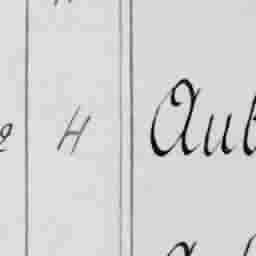 2 H Aub